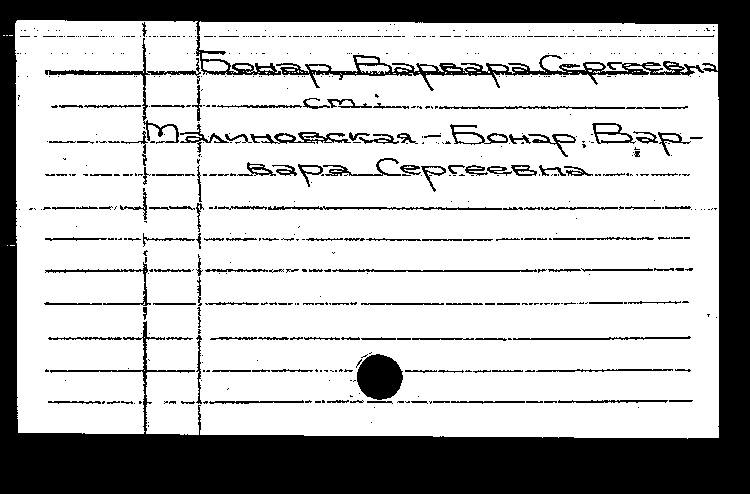 Бонар, Варвара Сергеевна
см.:
Малиновская-Бонар, Вар-
вара Сергеевна